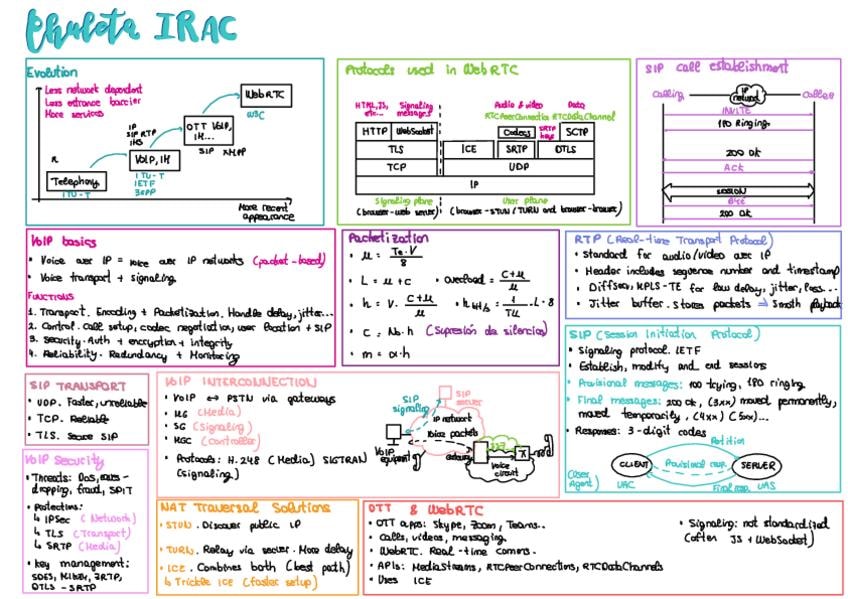 Chuleta IRAC
Evolution
Less network dependent
Less entrance barrier
More services
Telephony
ITU-T
IP
SIP RTP
IMS
VoIP, IM
ITU-T
IETF
3GPP
OTT VoIP,
IM...
SIP XMPP
WebRTC
W3C
More recent
appearance
Protocols used in WebRTC
HTML, JS,
etc...
Signaling
messages
Audio & video
RTCPeerConnection
Data
RTCDataChannel
HTTP
WebSocket
Codecs
SRTP
keys
SCTP
TLS
ICE
SRTP
DTLS
TCP
UDP
IP
Signaling plane
(browser-web server)
User plane
(browser-STUN/TURN and browser-browser)
SIP call establishment
calling
IP
network
callee
INVITE
180 Ringing
200 OK
Ack
SESSION
BYE
200 OK
VoIP basics
• Voice over IP = voice over IP networks (packet-based)
• Voice transport + signaling.
FUNCTIONS
1. Transport. Encoding + Packetization. Handle delay, jitter...
2. Control. Call setup, codec negotiation, user location + SIP
3. Security. Auth + encryption + integrity
4. Reliability. Redundancy + Monitoring
Packetization
• L = μ + cμ
• c = No · h (Supresión de silencios)
• m = α·h
RTP (Real-time Transport Protocol)
• Standard for audio/video over IP
• Header includes sequence number and timestamp
• Diffserv, MPLS-TE for low delay, jitter, loss...
• Jitter buffer. Stores packets ⇒ Smooth playback
SIP (Session Initiation Protocol)
• Signaling protocol. IETF
• Establish, modify and end sessions
• Provisional messages: 100 trying, 180 ringing
• Final messages: 200 OK, (3xx) moved permanently,
moved temporarily, (4xx) (5xx)...
• Responses: 3-digit codes
Petition
CLIENT
Provisional resp.
SERVER
(User
Agent)
UAC
Final resp.
UAS
SIP TRANSPORT
• UDP. Faster, unreliable
• TCP. Reliable
• TLS. Secure SIP
VoIP INTERCONNECTION
• VoIP ↔ PSTN via gateways
• MG (Media)
• SG (Signaling)
• MGC (Controller)
• Protocols: H.248 (Media) SIGTRAN
(Signaling)
SIP
signaling
SIP
server
IP network
Voice packets
VoIP
equipment
gateway
SS7
Voice
circuit
VoIP Security
• Threads: DoS, eaves-
dropping, fraud, SPIT
• Protections:
↳ IPSec (Network)
↳ TLS (Transport)
↳ SRTP (Media)
• Key management:
SDES, Mikey, ZRTP,
DTLS-SRTP
NAT Traversal Solutions
• STUN. Discover public IP
• TURN. Relay via server. More delay
• ICE. Combines both (best path)
↳ Trickle ICE (faster setup)
OTT & WebRTC
• OTT apps: Skype, Zoom, Teams..
• Calls, videos, messaging.
• WebRTC. Real-time comms.
• APIs: MediaStreams, RTCPeerConnections, RTCDataChannels
• Uses ICE
• Signaling: not standardized
(often JS + WebSocket)